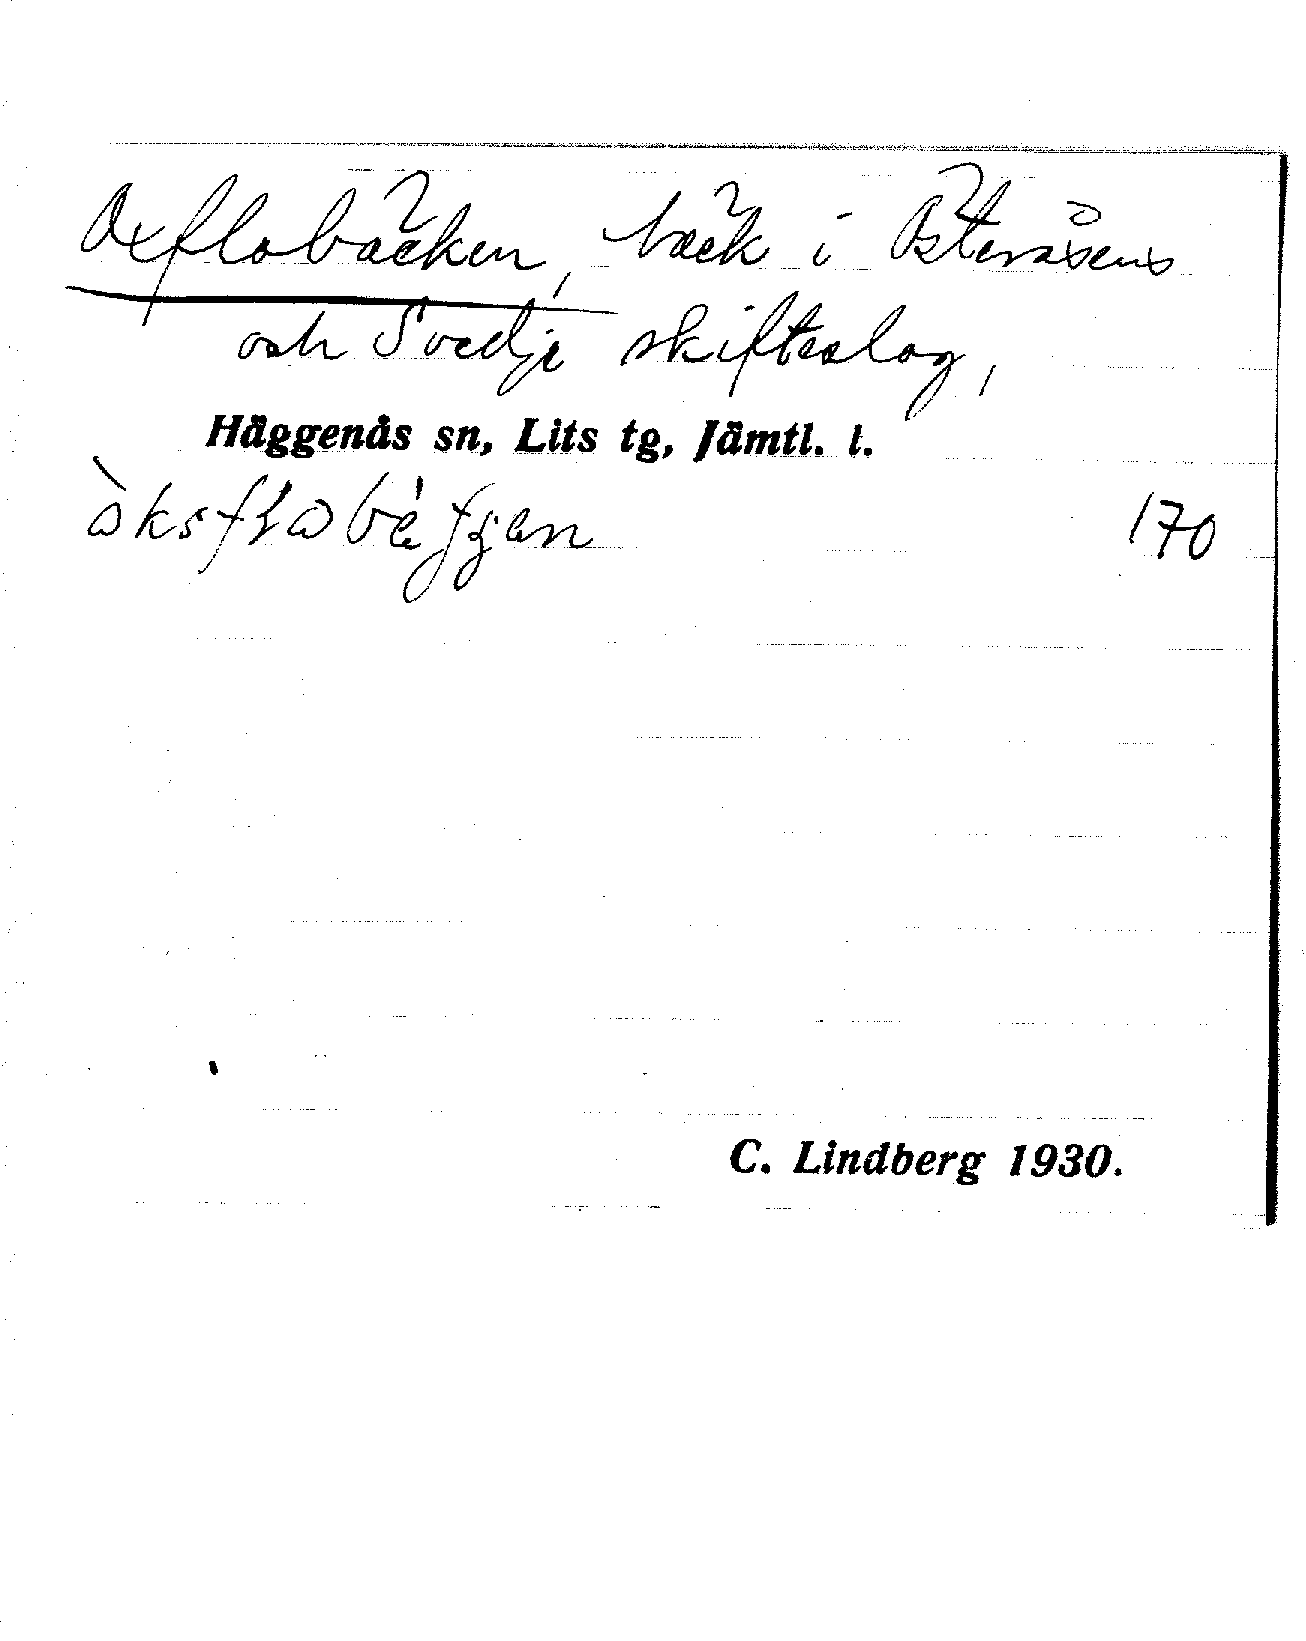 Oxflobäcken, bäck i Österåsens
och Svedje skifteslag,
Häggenås sn, Lits tg, Jämtl. l.
170
C. Lindberg 1930.